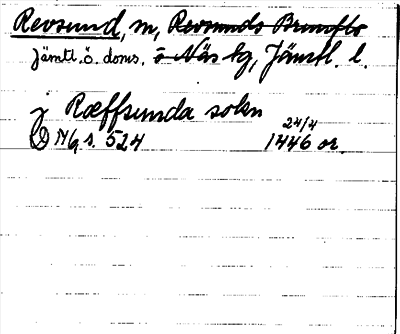 Revsund, m, Revsunds Brunflo
Jämtl. ö. doms. o Näs tg, Jämtl. l.
j Ræffsunda sokn
24/4
N6, s. 524 1446 or.